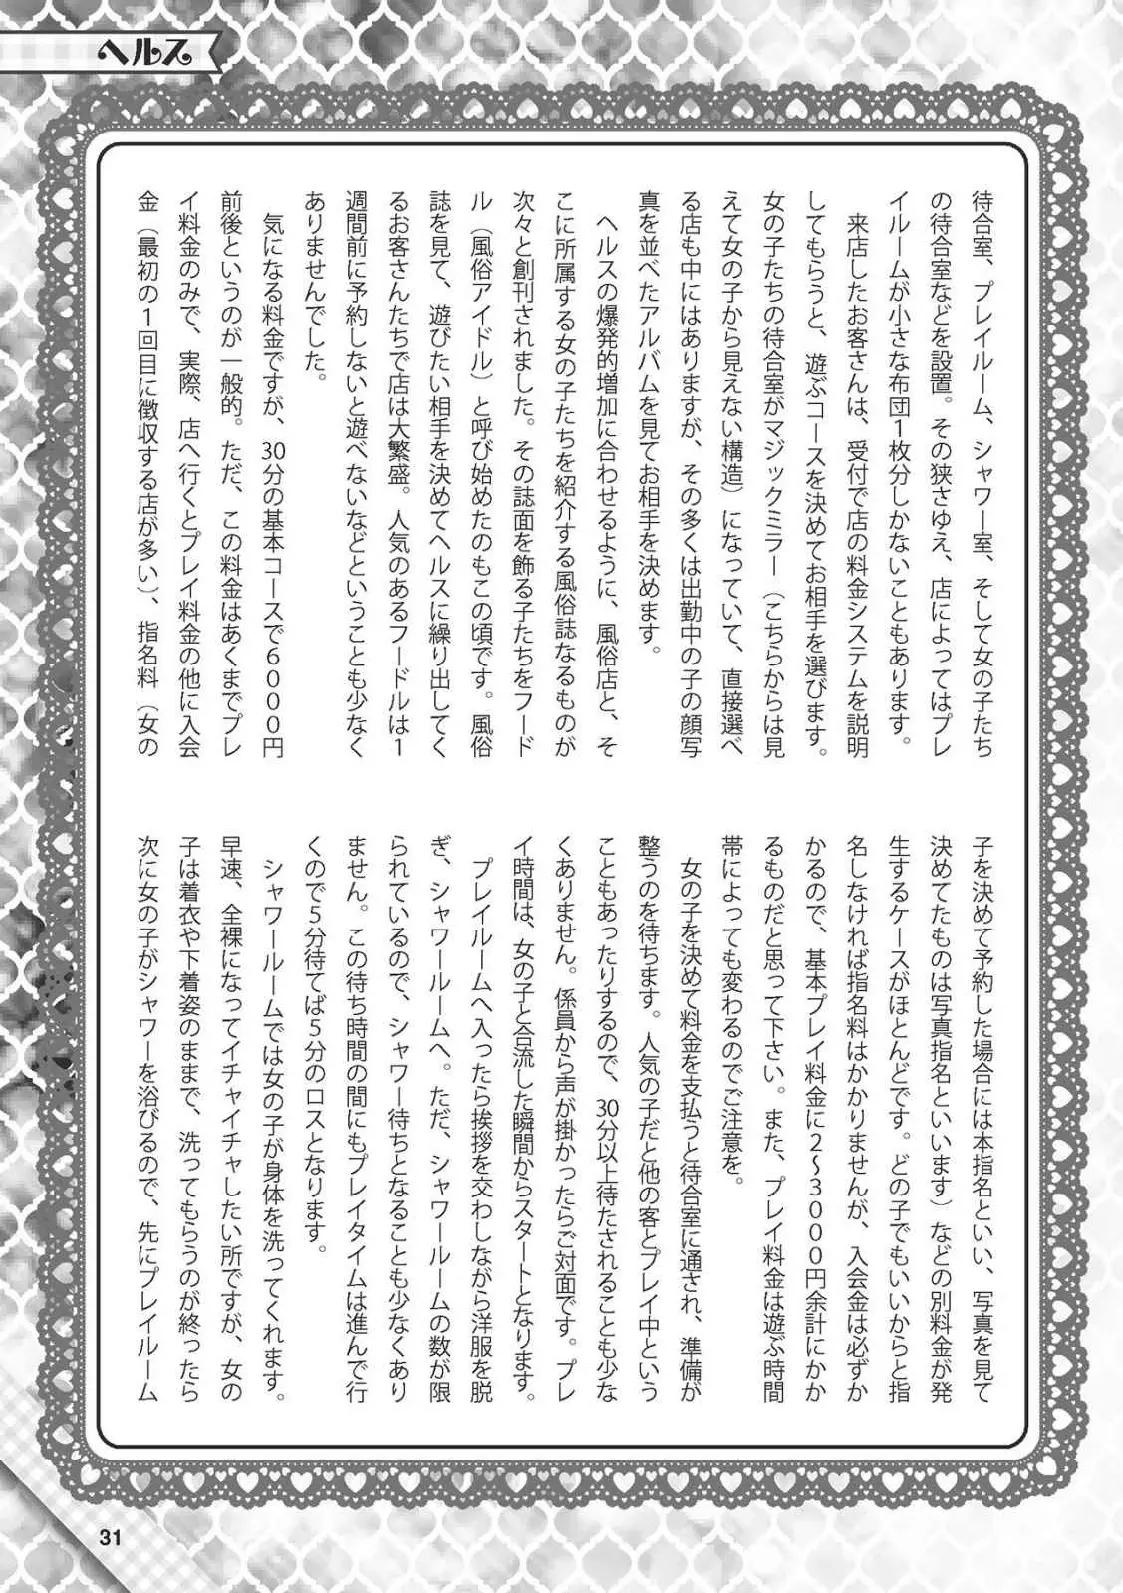 ヘルス
待合室、プレイルーム、シャワー室、そして女の子たち
の待合室などを設置。その狭さゆえ、店によってはプレ
イルームが小さな布団1枚分しかないこともあります。
来店したお客さんは、受付で店の料金システムを説明
してもらうと、遊ぶコースを決めてお相手を選びます。
女の子たちの待合室がマジックミラー（こちらからは見
えて女の子から見えない構造）になっていて、直接選べ
る店も中にはありますが、その多くは出勤中の子の顔写
真を並べたアルバムを見てお相手を決めます。
ヘルスの爆発的増加に合わせるように、風俗店と、そ
こに所属する女の子たちを紹介する風俗誌なるものが
次々と創刊されました。その誌面を飾る子たちをフード
ル（風俗アイドル）と呼び始めたのもこの頃です。風俗
誌を見て、遊びたい相手を決めてヘルスに繰り出してく
るお客さんたちで店は大繁盛。人気のあるフードルは1
週間前に予約しないと遊べないなどということも少なく
ありませんでした。
気になる料金ですが、30分の基本コースで6000円
前後というのが一般的。ただ、この料金はあくまでプレ
イ料金のみで、実際、店へ行くとプレイ料金の他に入会
金（最初の1回目に徴収する店が多い）、指名料（女の
子を決めて予約した場合には本指名といい、写真を見て
決めてたものは写真指名といいます）などの別料金が発
生するケースがほとんどです。どの子でもいいからと指
名しなければ指名料はかかりませんが、入会金は必ずか
かるので、基本プレイ料金に2〜3000円余計にかか
るものだと思って下さい。また、プレイ料金は遊ぶ時間
帯によっても変わるのでご注意を。
女の子を決めて料金を支払うと待合室に通され、準備が
整うのを待ちます。人気の子だと他の客とプレイ中という
こともあったりするので、30分以上待たされることも少な
くありません。係員から声が掛かったらご対面です。プレ
イ時間は、女の子と合流した瞬間からスタートとなります。
プレイルームへ入ったら挨拶を交わしながら洋服を脱
ぎ、シャワールームへ。ただ、シャワールームの数が限
られているので、シャワー待ちとなることも少なくあり
ません。この待ち時間の間にもプレイタイムは進んで行
くので5分待てば5分のロスとなります。
シャワールームでは女の子が身体を洗ってくれます。
早速、全裸になってイチャイチャしたい所ですが、女の
子は着衣や下着姿のままで、洗ってもらうのが終ったら
次に女の子がシャワーを浴びるので、先にプレイルーム
31